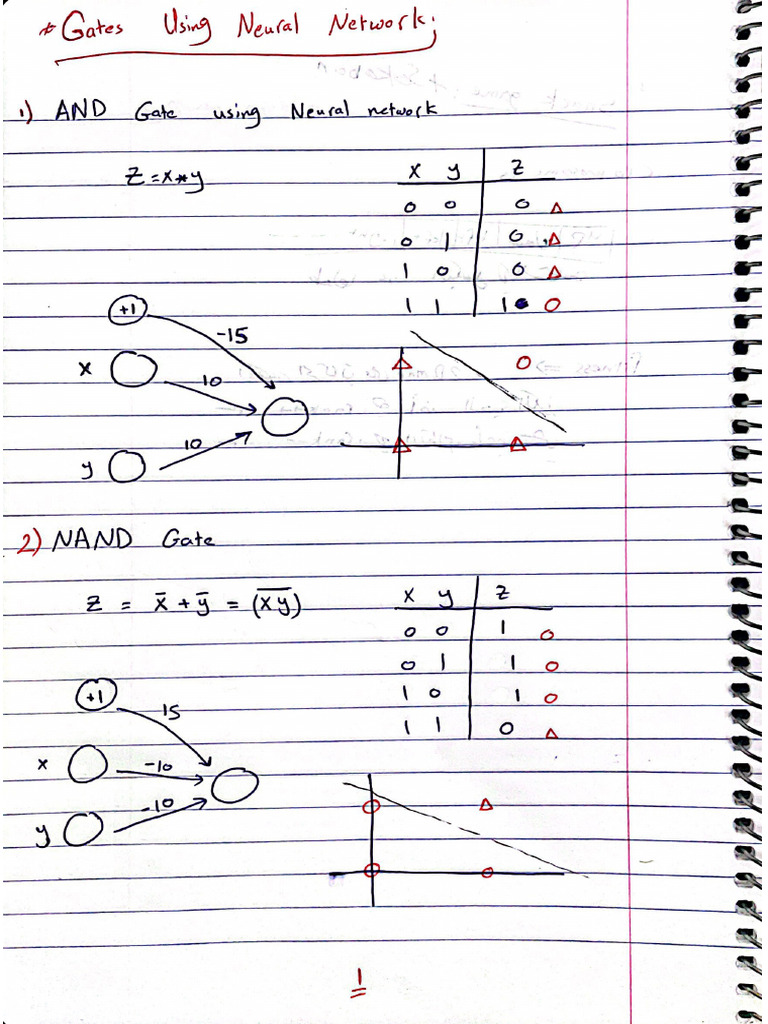 * Gates Using Neural Network;
1) AND Gate using Neural network
Z = x * y
x y z
0 0 0
0 1 0
1 0 0
1 1 1
+1
-15
x
10
10
y
2) NAND Gate
Z = x̄ + ȳ = (x̅y̅)
x y z
0 0 1
0 1 1
1 0 1
1 1 0
+1
15
x
-10
-10
y
1